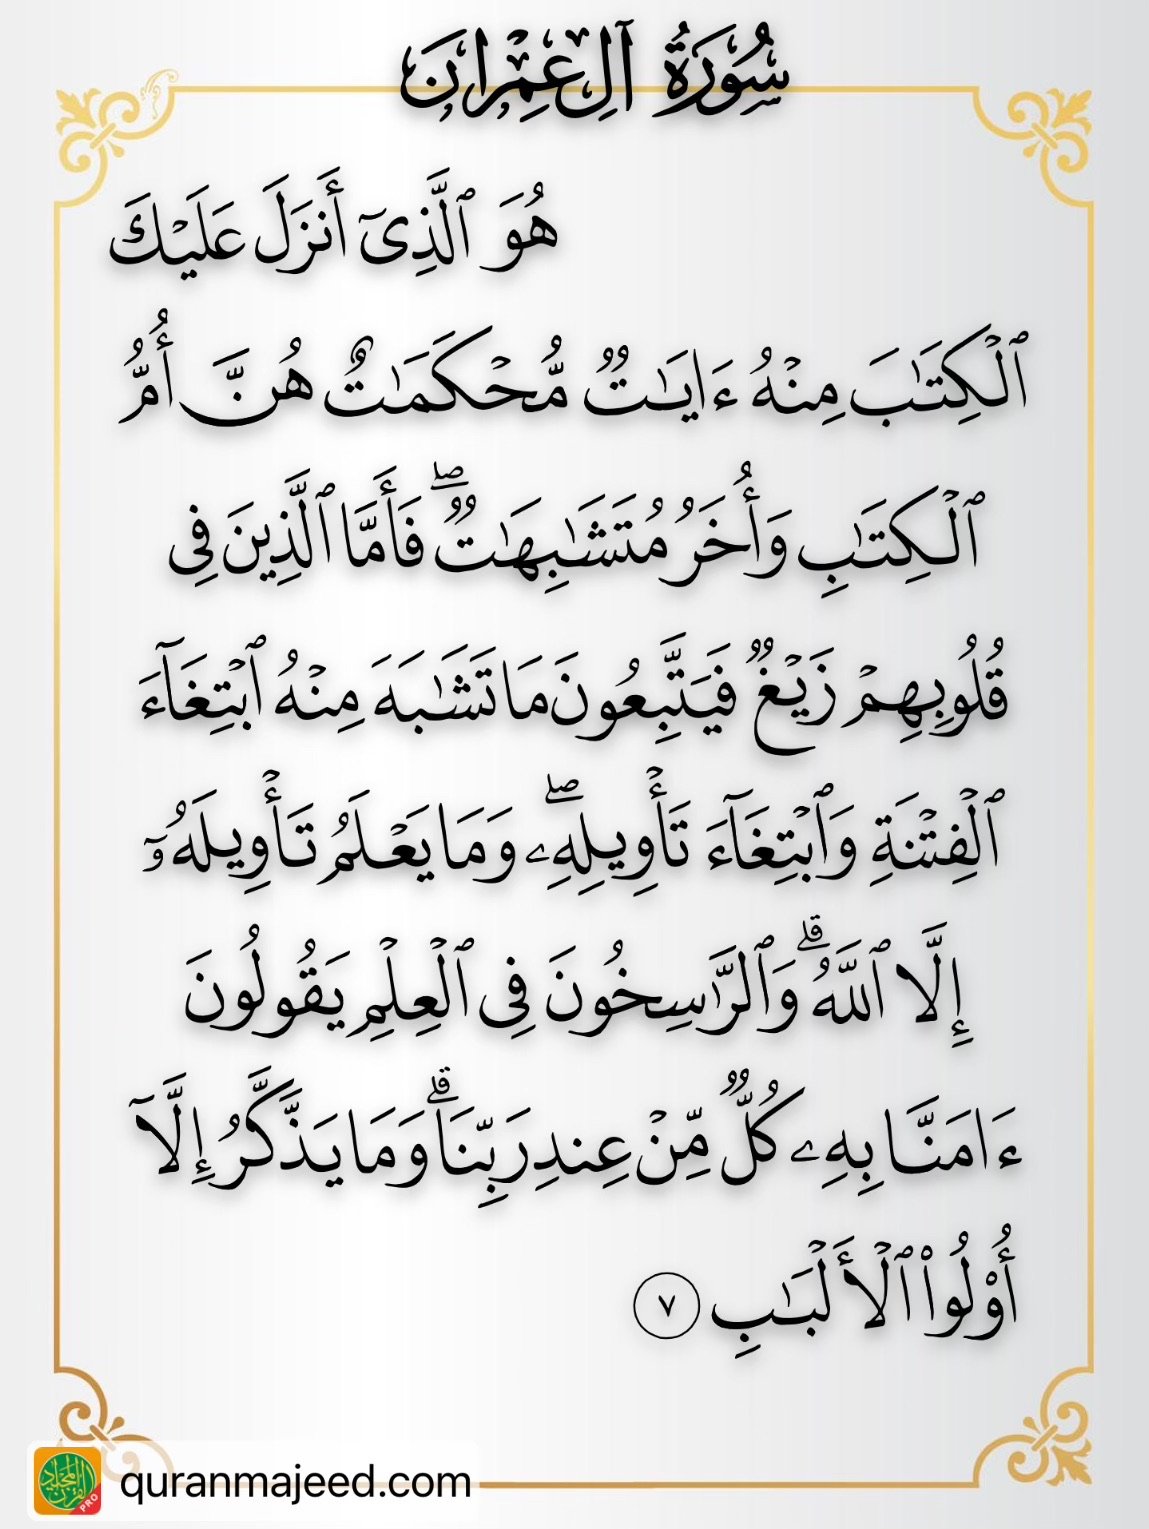 سُورَةُ آلِ عِمۡرَانَ
هُوَ ٱلَّذِىٓ أَنزَلَ عَلَيۡكَ
ٱلۡكِتَـٰبَ مِنۡهُ ءَايَـٰتٌ مُّحۡكَمَـٰتٌ هُنَّ أُمُّ
ٱلۡكِتَـٰبِ وَأُخَرُ مُتَشَـٰبِهَـٰتٌ‌ۖ فَأَمَّا ٱلَّذِينَ فِى
قُلُوبِهِمۡ زَيۡغٌ فَيَتَّبِعُونَ مَا تَشَـٰبَهَ مِنۡهُ ٱبۡتِغَآءَ
ٱلۡفِتۡنَةِ وَٱبۡتِغَآءَ تَأۡوِيلِهِۦ‌ۖ وَمَا يَعۡلَمُ تَأۡوِيلَهُۥۤ
إِلَّا ٱللَّهُ‌ۗ وَٱلرَّٲسِخُونَ فِى ٱلۡعِلۡمِ يَقُولُونَ
ءَامَنَّا بِهِۦ كُلٌّ مِّنۡ عِندِ رَبِّنَا‌ۗ وَمَا يَذَّكَّرُ إِلَّآ
أُوْلُواْ ٱلۡأَلۡبَـٰبِ ٧
quranmajeed.com